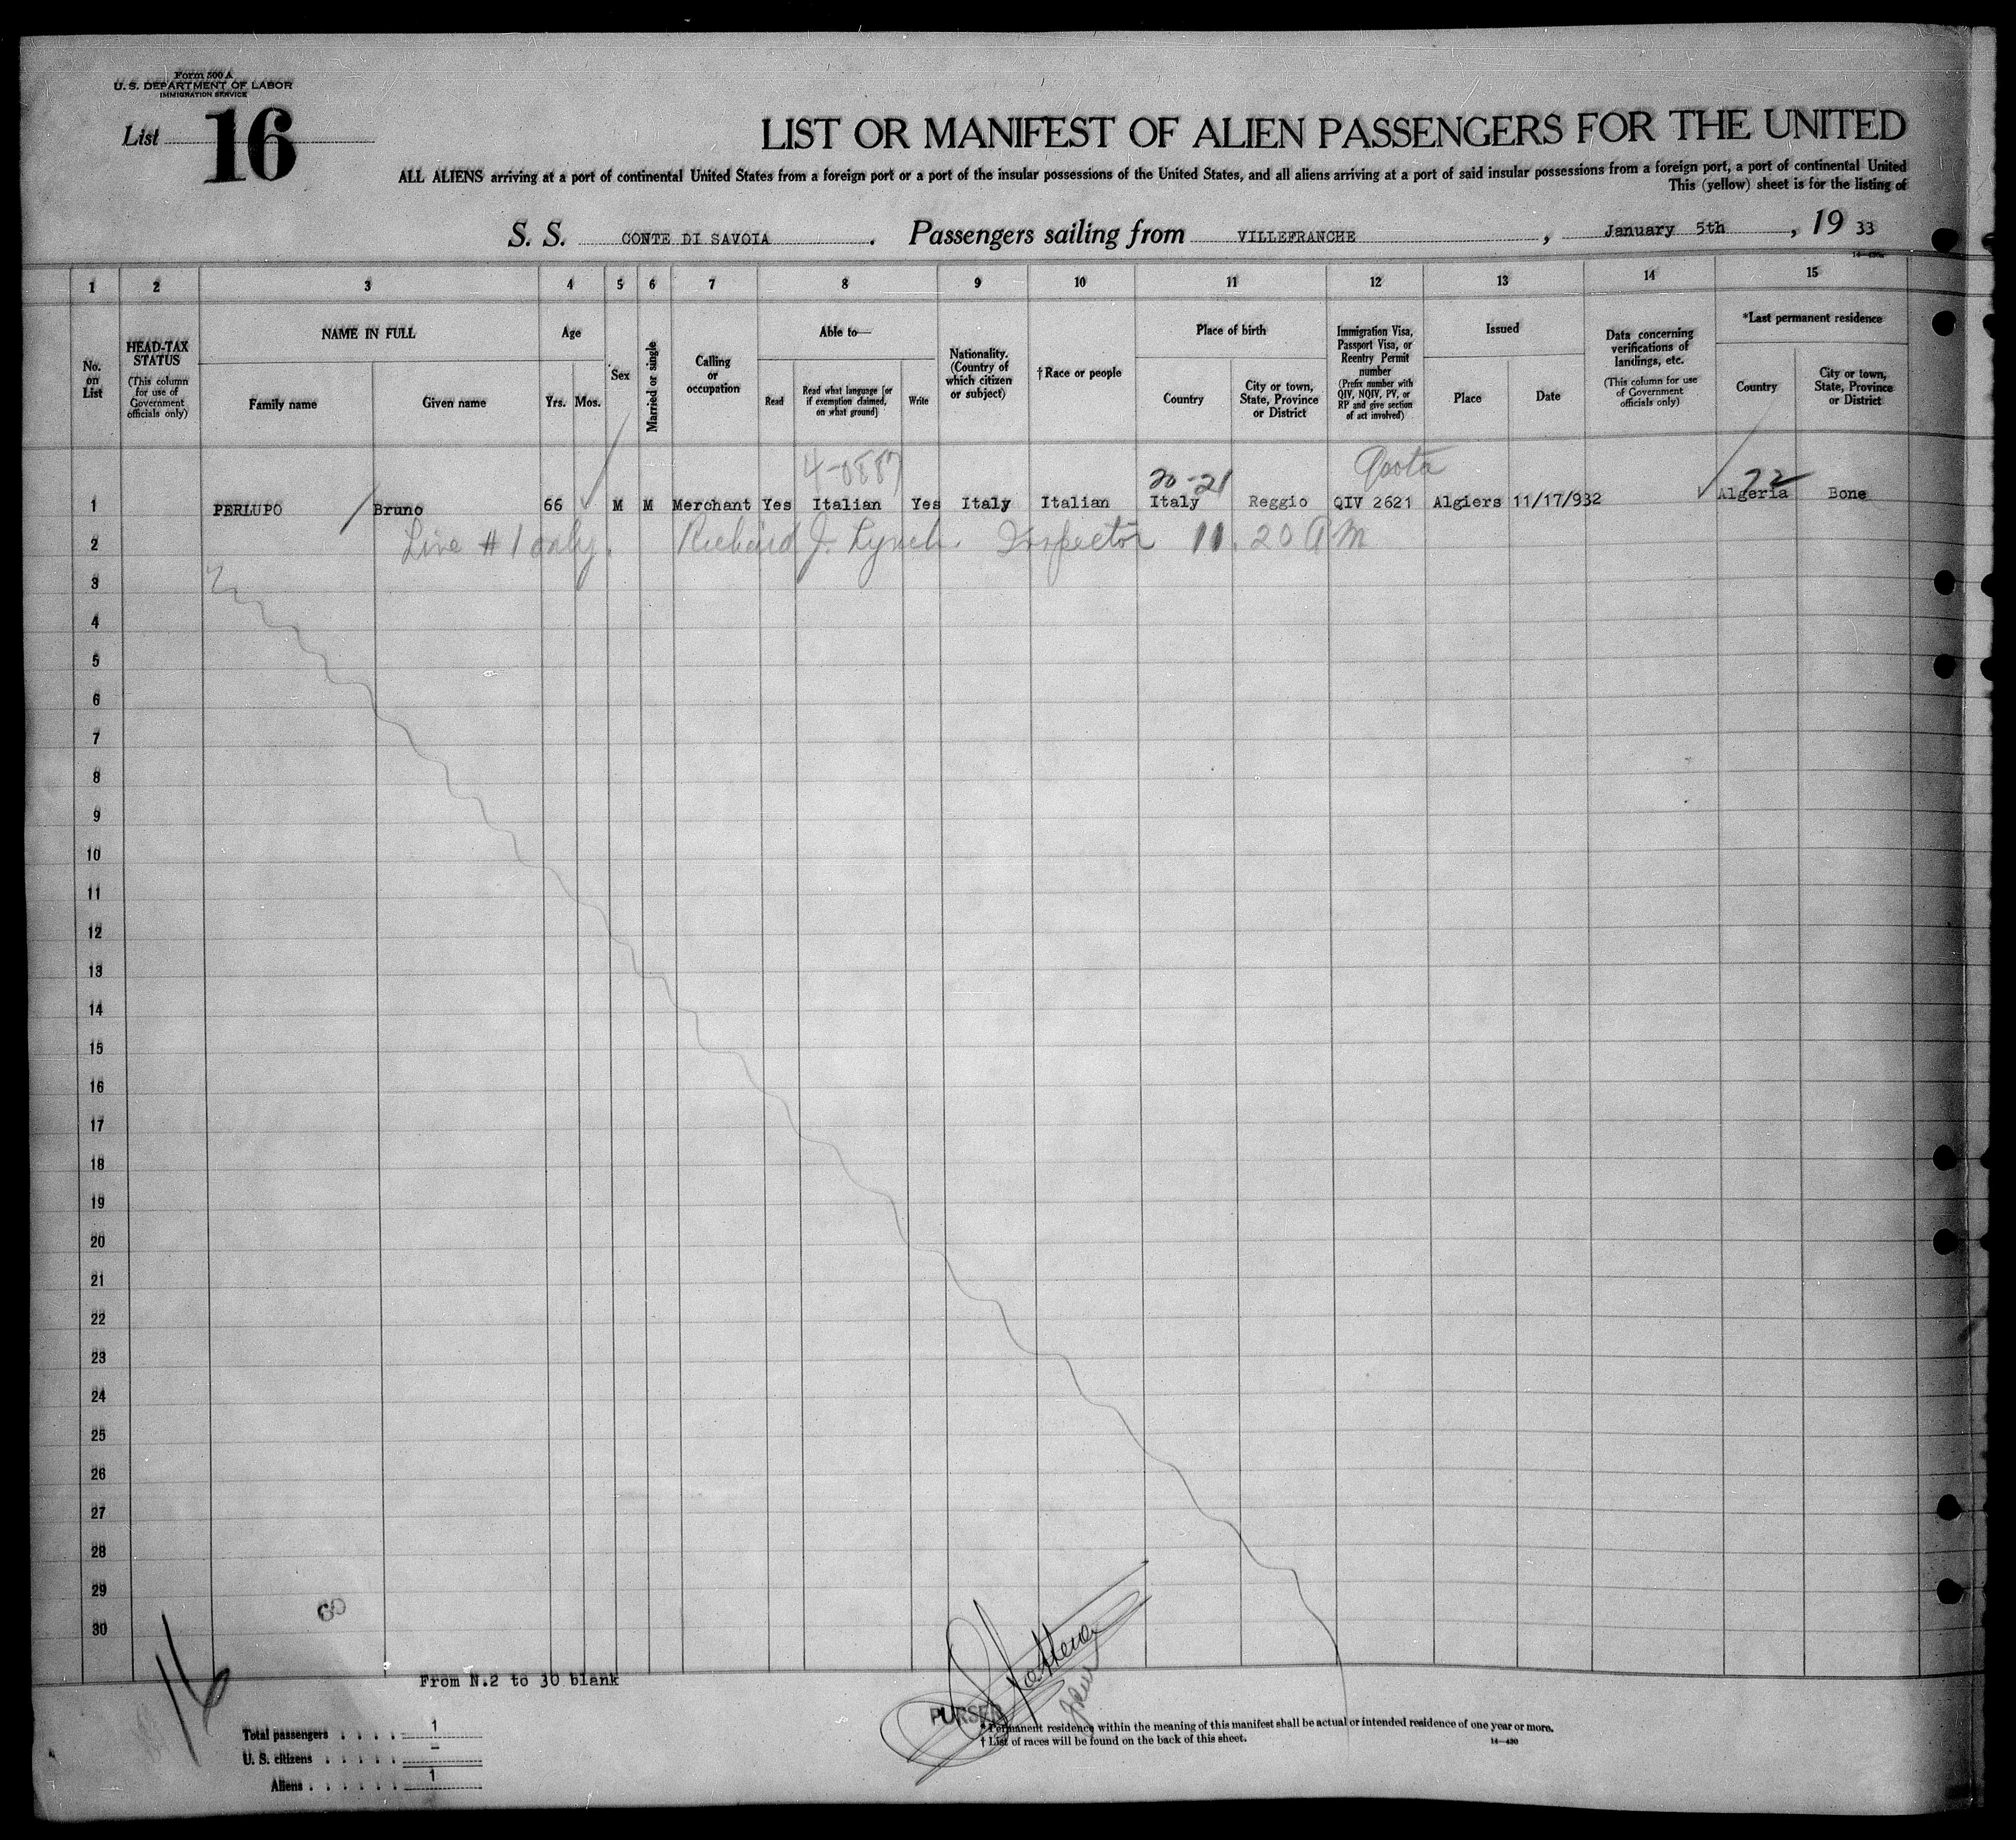 Form 500 A
U. S. DEPARTMENT OF LABOR
IMMIGRATION SERVICE
List 16
LIST OR MANIFEST OF ALIEN PASSENGERS FOR THE UNITED
ALL ALIENS arriving at a port of continental United States from a foreign port or a port of the insular possessions of the United States, and all aliens arriving at a port of said insular possessions from a foreign port, a port of continental United
This (yellow) sheet is for the listing of
S. S. CONTE DI SAVOIA . Passengers sailing from VILLEFRANCHE , January 5th , 19 33
1 2 3 4 5 6 7 8 9 10 11 12 13 14 15
No. on List
HEAD-TAX STATUS (This column for use of Government officials only)
NAME IN FULL
Family name Given name
Age
Yrs. Mos.
Sex
Married or single
Calling or occupation
Able to—
Read Read what language [or if exemption claimed, on what ground] Write
Nationality. (Country of which citizen or subject)
†Race or people
Place of birth
Country City or town, State, Province or District
Immigration Visa, Passport Visa, or Reentry Permit number (Prefix number with QIV, NQIV, PV, or RP and give section of act involved)
Issued
Place Date
Data concerning verifications of landings, etc. (This column for use of Government officials only)
*Last permanent residence
Country City or town, State, Province or District
20-21 Quota 72
1 PERLUPO Bruno 66 M M Merchant Yes Italian Yes Italy Italian Italy Reggio QIV 2621 Algiers 11/17/932 Algeria Bone
2 Line # 1 only. Richard J. Lynch. Inspector 11.20 AM
3
4
5
6
7
8
9
10
11
12
13
14
15
16
17
18
19
20
21
22
23
24
25
26
27
28
29
30
From N.2 to 30 blank
16
PURSER
Total passengers . . . . 1
U. S. citizens . . . . . —
Aliens . . . . . . 1
* Permanent residence within the meaning of this manifest shall be actual or intended residence of one year or more.
† List of races will be found on the back of this sheet.
14—430